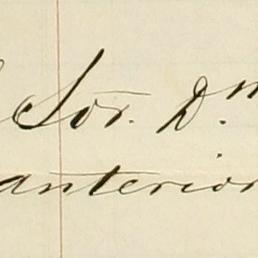 Sor. Dn.
anterior